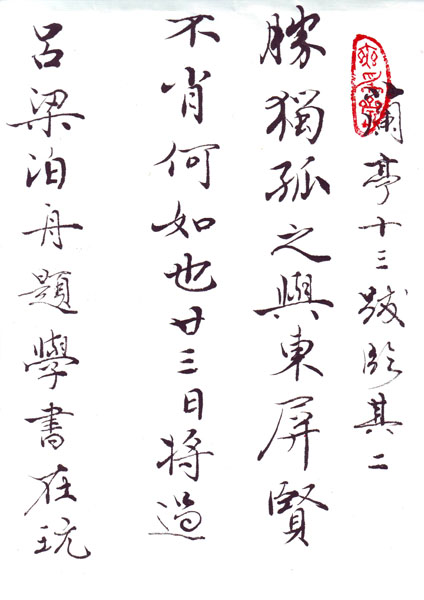 蘭亭十三跋臨其二
勝獨孤之與東屏賢
不肖何如也廿三日將過
呂梁泊舟題學書在玩